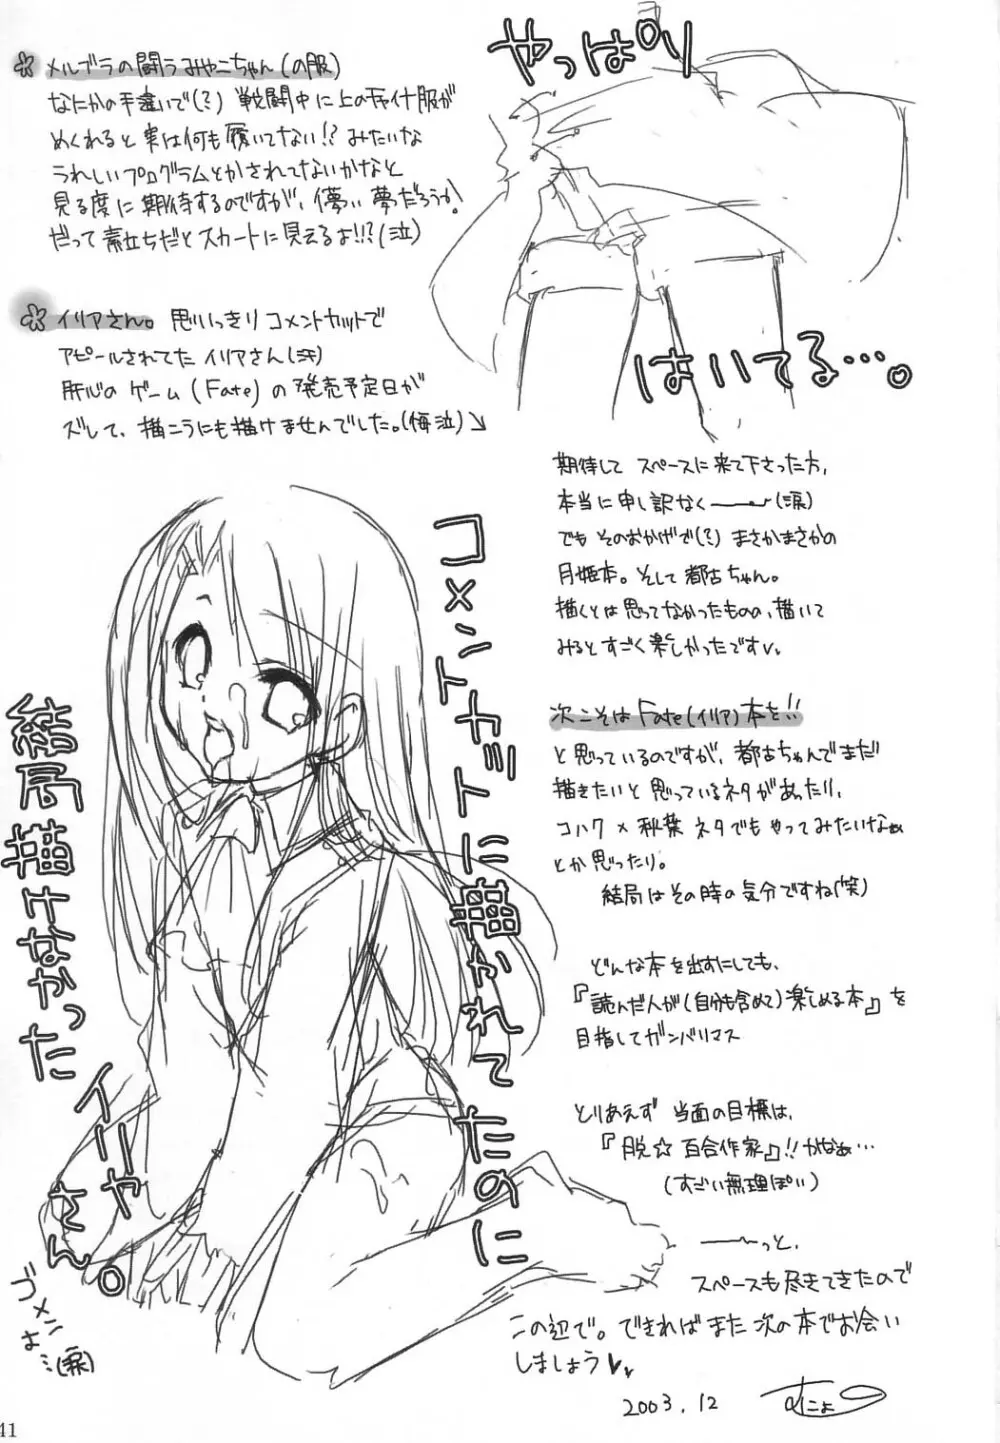 メルブラの闘うみやこちゃん(の服)
なにかの手違いで(?) 戦闘中に上のチャイナ服が
めくれると実は何も履いてない!? みたいな
うれしいプログラムとかされてないかなと
見る度に期待するのですが、儚い夢だろうか!
だって素立ちだとスカートに見えるよ!!?(泣)
やっぱり
はいてる…。
イリアさん。思いっきりコメントカットで
アピールされてたイリアさん(汗)
肝心のゲーム(Fate)の発売予定日が
ズレて、描こうにも描けませんでした。(悔泣)
コメントカットに描かれてたのに
結局描けなかった
イリヤさん。
ゴメンよ…(涙)
期待してスペースに来て下さった方、
本当に申し訳なく――(涙)
でもそのおかげで(?)まさかまさかの
月姫本。そして都古ちゃん。
描くとは思ってなかったものの、描いて
みるとすごく楽しかったです
次こそはFate(イリア)本を!!
と思っているのですが、都古ちゃんでまだ
描きたいと思っているネタがあったり、
コハク×秋葉ネタでもやってみたいなぁ
とか思ったり。
結局はその時の気分ですね(笑)
どんな本を出すにしても、
『読んだ人が(自分も含めて)楽しめる本』を
目指してガンバリマス
とりあえず当面の目標は、
『脱☆百合作家』!!かなぁ…
(すごい無理ぽい)
――っと、
スペースも尽きてきたので
この辺で。できればまた次の本でお会い
しましょう
2003.12
41